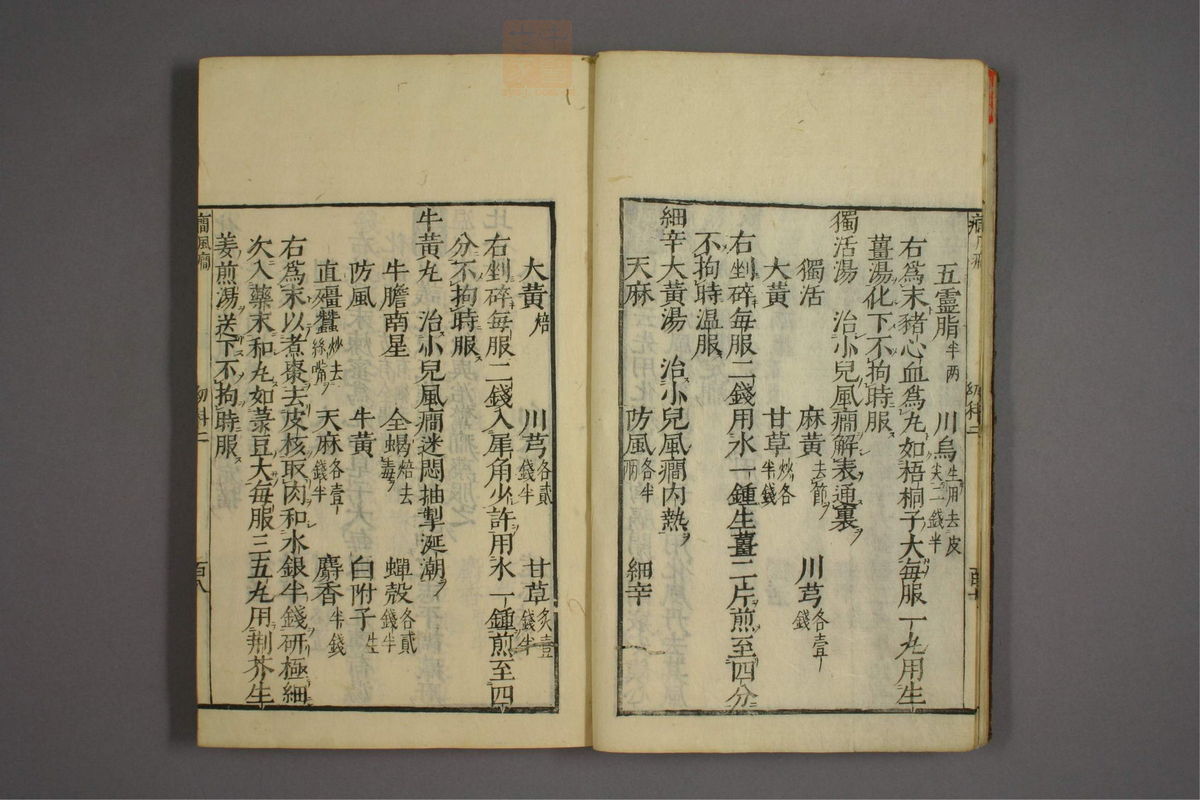 五靈脂半两　川烏生用去皮尖二錢半
右爲末豬心血爲丸如梧桐子大每服一丸用生
薑湯化下不拘時服
獨活湯　治小兒風癎解表通裏
獨活　麻黃去節　川芎各壹錢
大黃　甘草炒各半錢
右剉碎每服二錢用水一鍾生薑二片煎至四分
不拘時温服
細辛大黃湯　治小兒風癎内熱
天麻　防風各半兩　細辛
幼科二
大黃焙　川芎各貳錢半　甘草炙壹錢半
右剉碎每服二錢入犀角少許用水一鍾煎至四
分不拘時服
牛黃丸　治小兒風癎迷悶抽掣涎潮
牛膽南星　全蝎焙去毒　蟬殼各貳錢半
防風　牛黃　白附子生
直殭蠶炒去絲嘴　天麻各壹錢半　麝香半錢
右爲末以煮棗去皮核取肉和水銀半錢研極細
次入藥末和丸如菉豆大每服三五丸用荆芥生
姜煎湯送下不拘時服
風癎
幼科二
百八